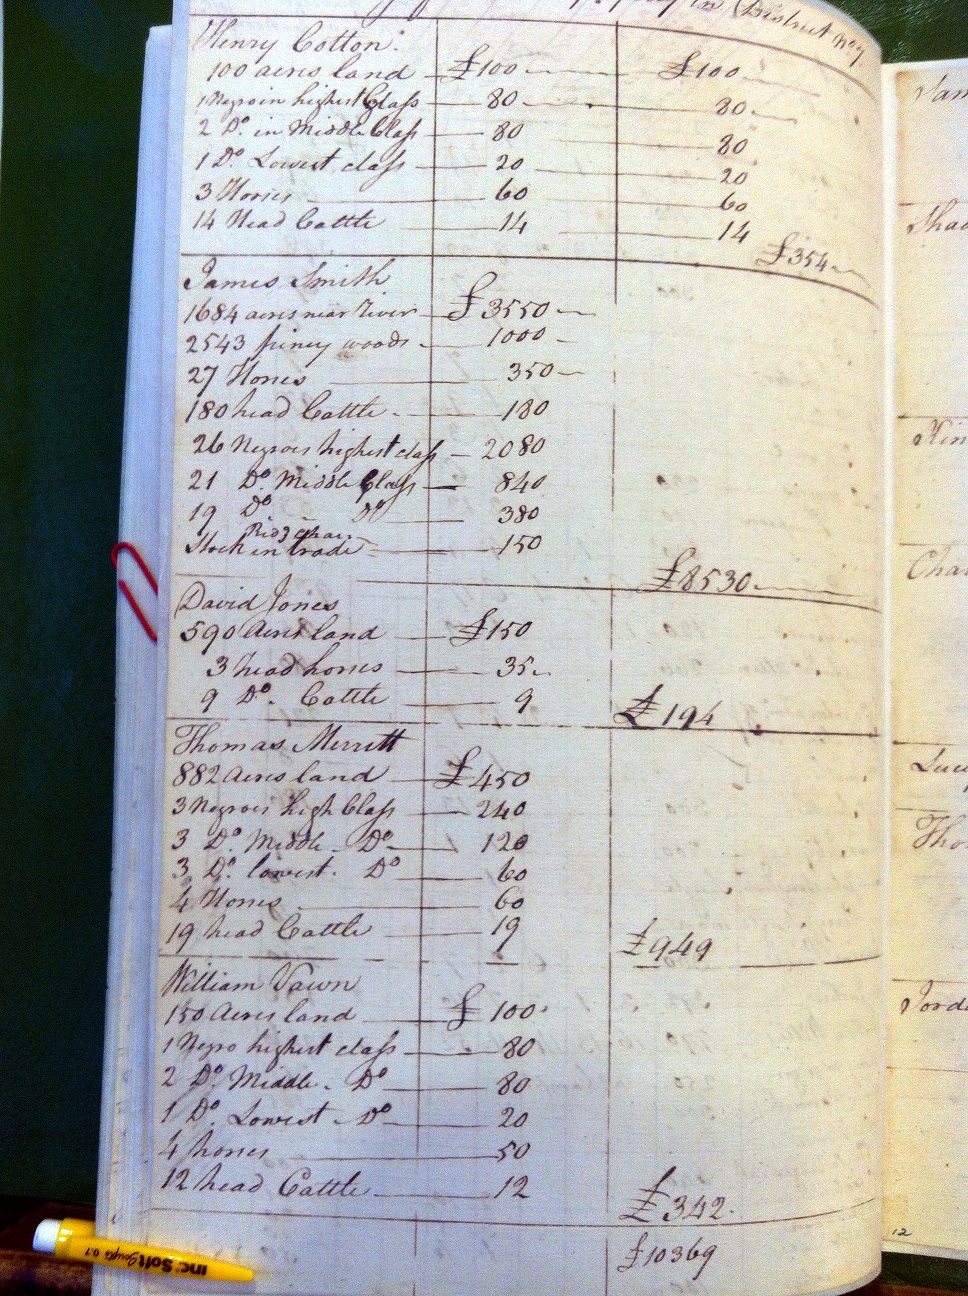 in District No 7
Henry Cotton
100 acres land £100 £100
1 Negro in highest Class 80 80
2 Do. in Middle Class 80 80
1 Do. Lowest class 20 20
3 Horses 60 60
14 Head Cattle 14 14
£354
James Smith
1684 acres near River £3550
2543 piney woods 1000
27 Horses 350
180 head Cattle 180
26 Negroes highest class 2080
21 Do. Middle Class 840
19 Do Do 380
Ridg chair
Stock in trade 150
£8530
David Jones
590 Acres land £150
3 head horses 35
9 Do. Cattle 9
£194
Thomas Merritt
882 Acres land £450
3 Negroes high Class 240
3 Do. Middle. Do 120
3 Do. lowest. Do 60
4 Horses 60
19 head Cattle 19
£949
William Vawn
150 Acres land £100
1 Negro highest class 80
2 Do. Middle. Do 80
1 Do. Lowest Do 20
4 horses 50
12 head Cattle 12
£342.
£10369
Jam
Shad
Kin
Char
Lucy
Tho
Jorda
12
inc. Soft 0.7